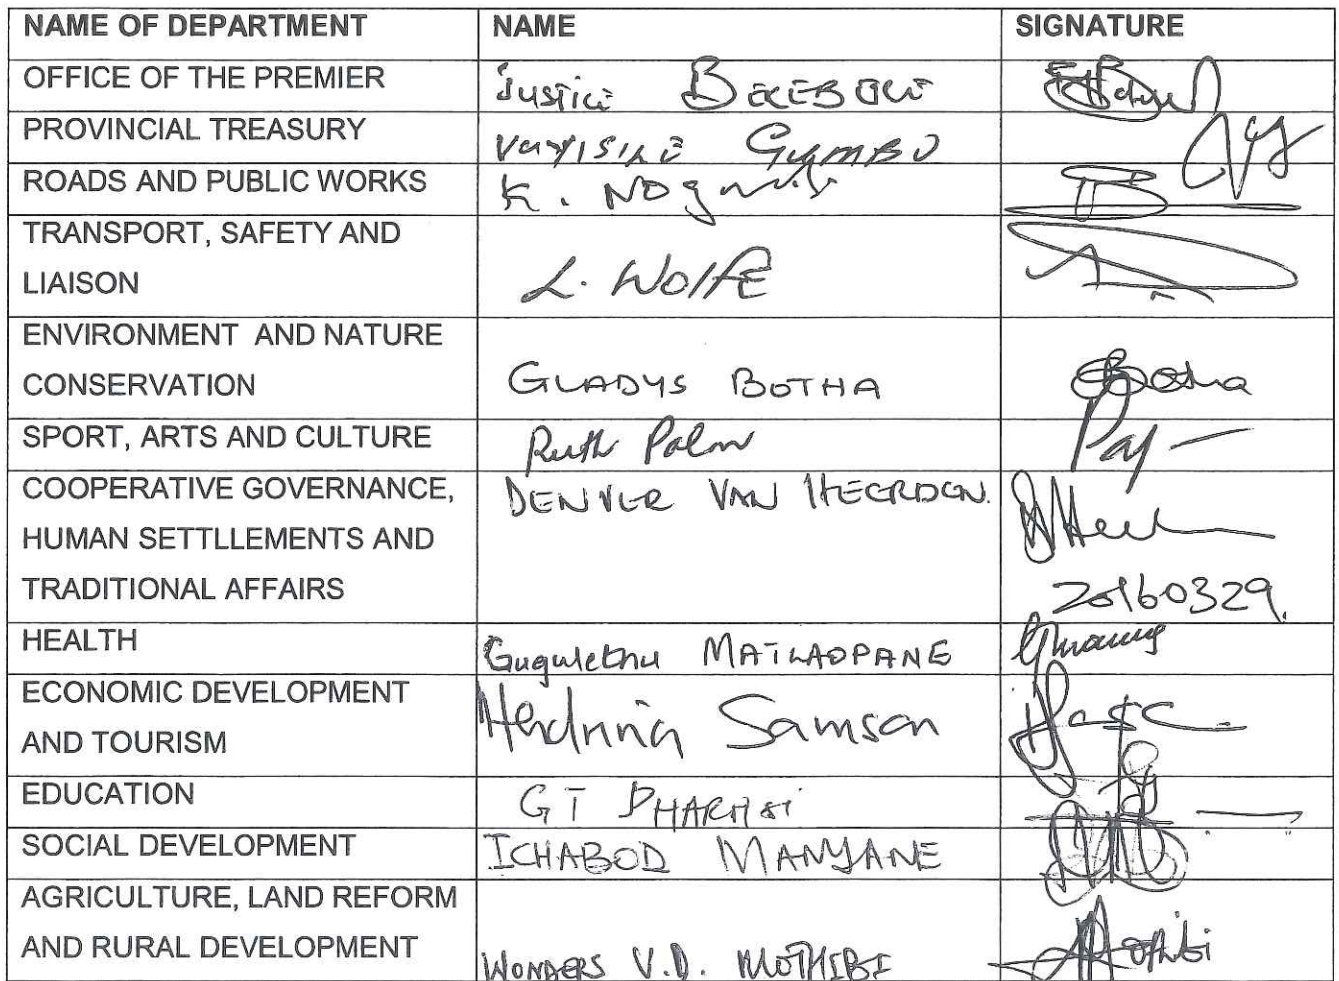 NAME OF DEPARTMENT NAME SIGNATURE
OFFICE OF THE PREMIER Justice
PROVINCIAL TREASURY
ROADS AND PUBLIC WORKS K.
TRANSPORT, SAFETY AND
LIAISON L. Wolfe
ENVIRONMENT AND NATURE
CONSERVATION GLADYS BOTHA Botha
SPORT, ARTS AND CULTURE Ruth Palm
COOPERATIVE GOVERNANCE, DENVER VAN HEERDEN.
HUMAN SETTLLEMENTS AND
TRADITIONAL AFFAIRS 20160329.
HEALTH Gugulethu MATLAOPANE
ECONOMIC DEVELOPMENT
AND TOURISM Hendrina Samson
EDUCATION GT
SOCIAL DEVELOPMENT ICHABOD MANYANE
AGRICULTURE, LAND REFORM
AND RURAL DEVELOPMENT WONDERS V.D. MOTHIBI